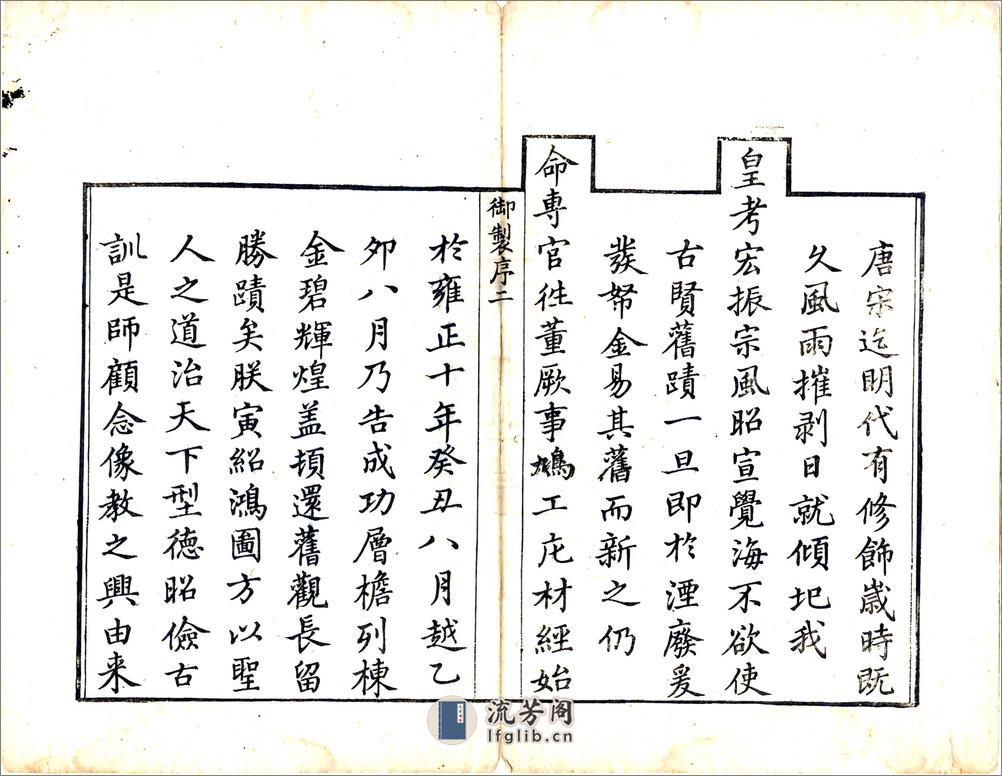 唐宋迄明代有修飾嵗時既
久風雨摧剥日就傾圯我
皇考宏振宗風昭宣覺海不欲使
古賢舊蹟一旦即於湮廢爰
發帑金易其舊而新之仍
命専官徃董厥事鳩工庀材經始
御製序二
於雍正十年癸丑八月越乙
夘八月乃告成功層檐列棟
金碧輝煌盖頓還舊觀長留
勝蹟矣朕寅紹鴻圖方以聖
人之道治天下型徳昭儉古
訓是師顧念像教之興由来
流芳阁
lfglib.cn